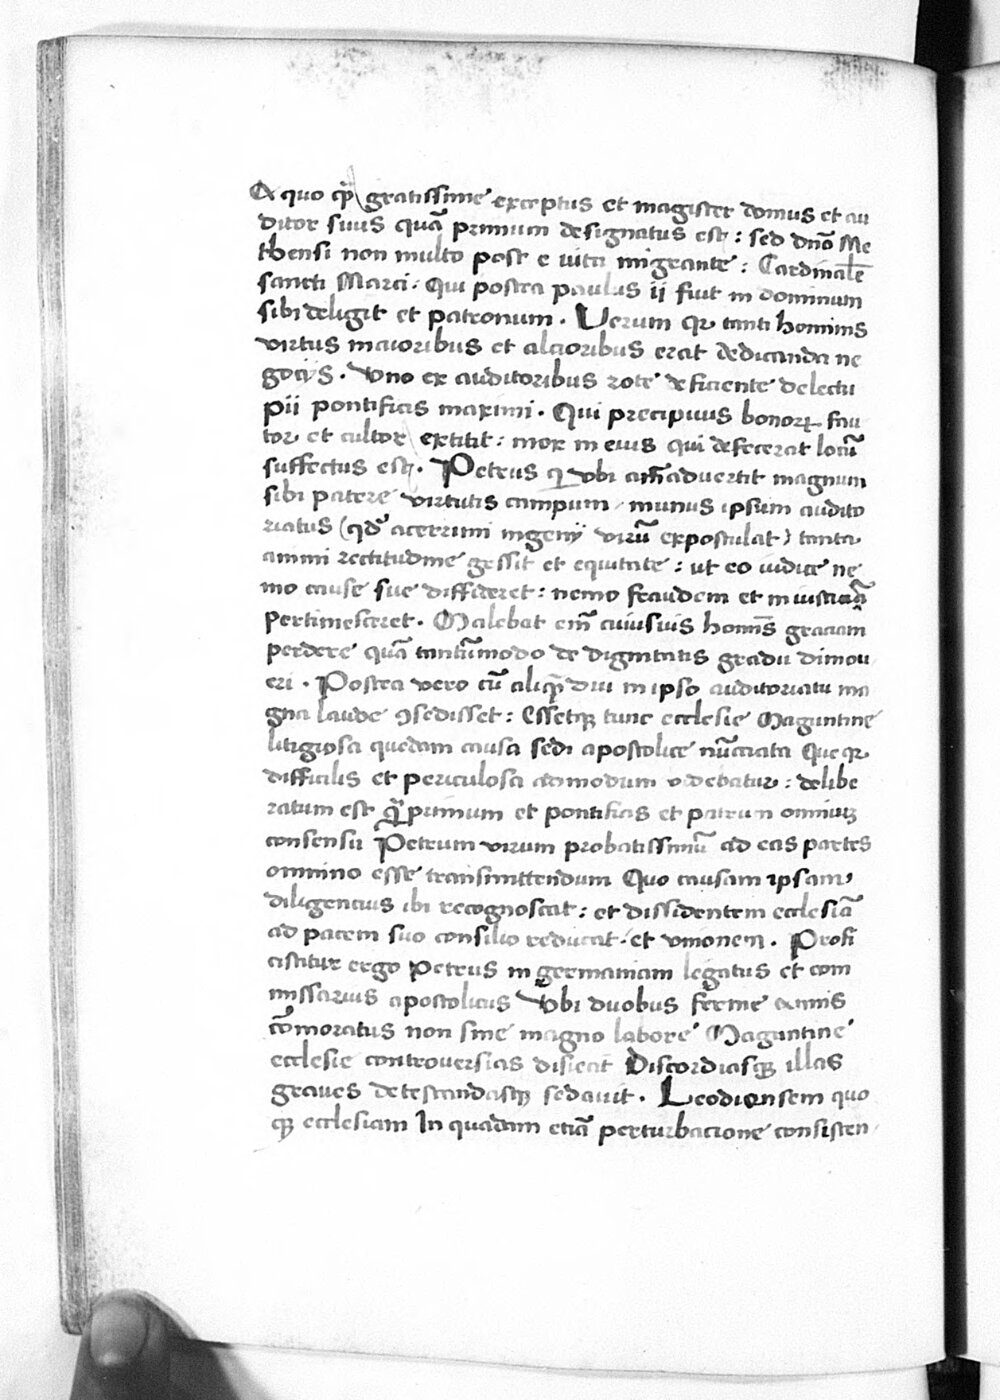 A quo qͣ gratissime exceptus et magister domus et au
ditor suus quā primum designatus est : sed dn̄o Me
thensi non multo post e uita migrante : Cardinalē
sancti Marci : Qui postea paulus ii fuit in dominum
sibi deligit et patronum . Verum qꝛ tanti hominis
virtus maioribus et altioribus erat dedicanda ne
gocijs . Vno ex auditoribus rote deficiente delectu
pii pontificis maximi . Qui precipuus bonoꝝ fau
tor et cultor extitit : mox in eius qui defecerat locū
suffectus est . Petrus qͥ vbi am̄aduertit magnum
sibi patere virtutis campum munus ipsum audito
riatus (qd' acerrimi ingenij virū expostulat) tanta
animi rectitudine gessit et equitate : ut eo iudice ne
mo cause sue diffideret : nemo fraudem et iniusticiā
pertimesceret . Malebat em̄ cuiusuis homīs gratiam
perdere quā tantūmodo de dignitatis gradu dimou
eri . Postea vero cū aliqͣdiu in ipso auditoriatu ma
gna laude ꝯsedisset : Essetqꝫ tunc ecclesie Maguntine
litigiosa quedam causa sedi apostolice nūctiata Que qꝛ
difficilis et periculosa admodum videbatur : delibe
ratum est qͣ primum et pontificis et patrum omniuꝫ
consensu Petrum virum probatissimū ad eas partes
omnino esse transmittendum Quo causam ipsam
diligencius ibi recognoscat : et dissidentem ecclesiā
ad pacem suo consilio reducat . et vnionem . Profi
ciscitur ergo Petrus in germaniam legatus et com
missarius apostolicus Vbi duobus ferme annis
cōmoratus non sine magno labore Maguntine
ecclesie controuersias disiecit Discordiasqꝫ illas
graues detestandasqꝫ sedauit . Leodiensem quo
qꝫ ecclesiam In quadam etiā perturbacione consisten